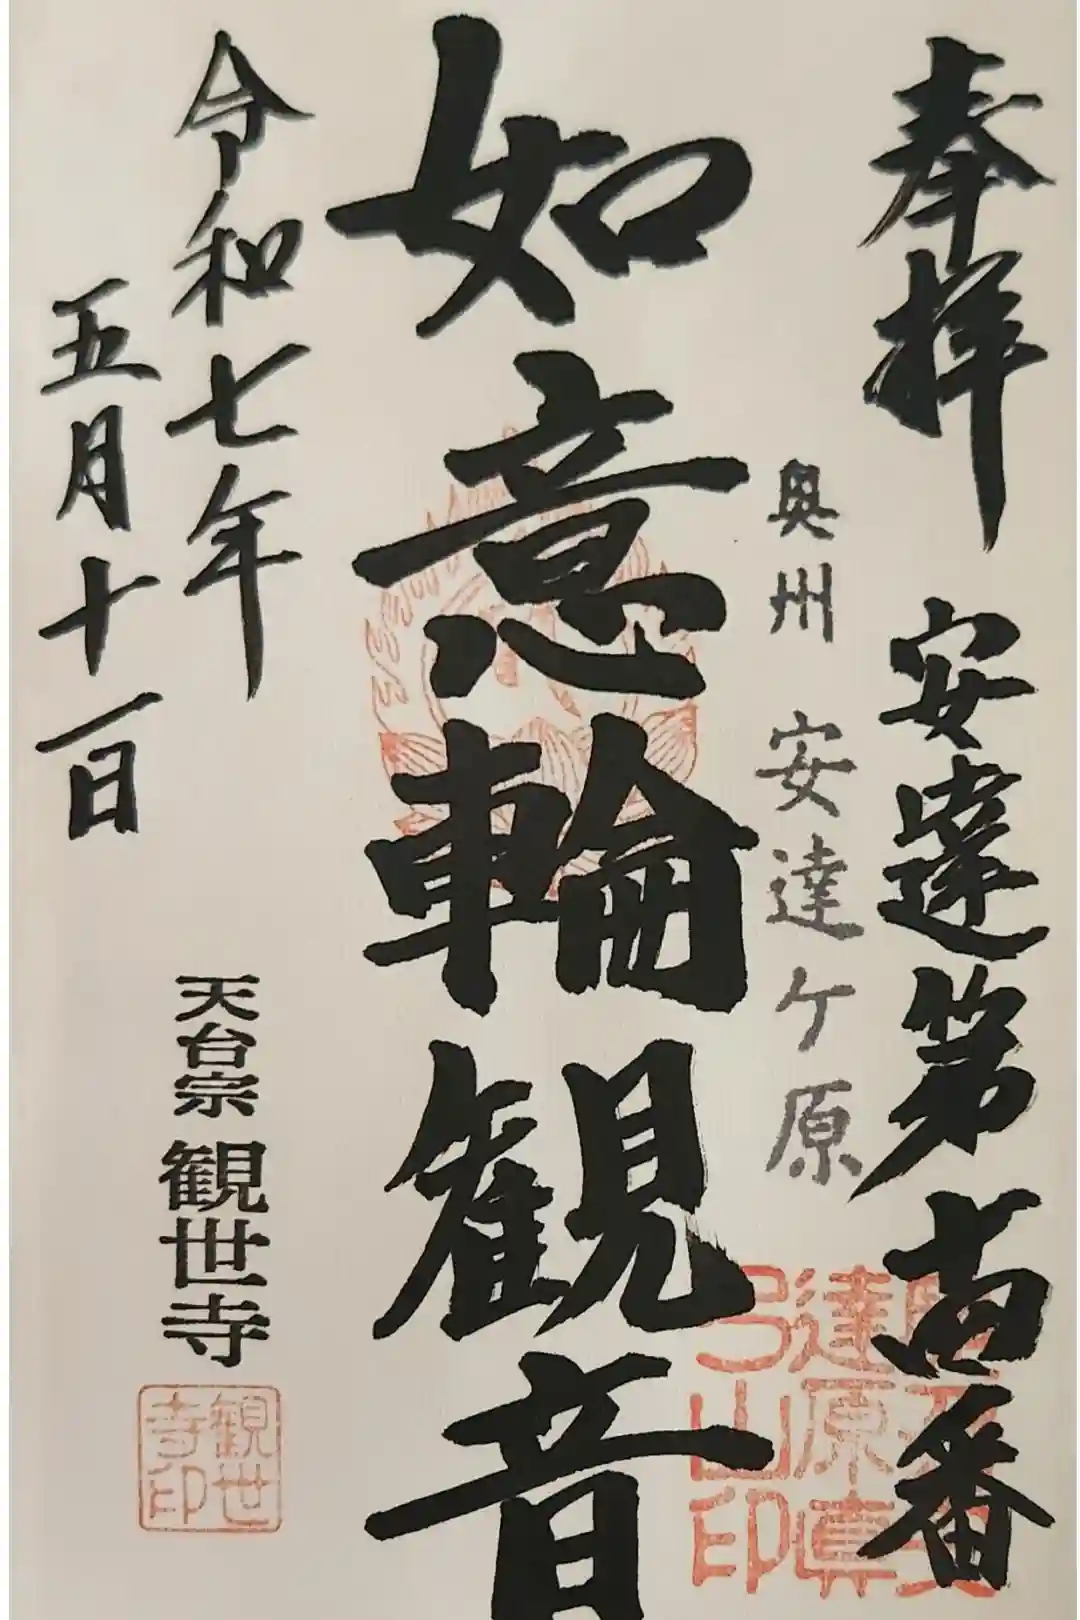 奉拝 安達第 番
奥州 安達ケ原
如意輪観音
令和七年
五月十一日
天台宗 観世寺
達原真
弓山印
観世
寺印